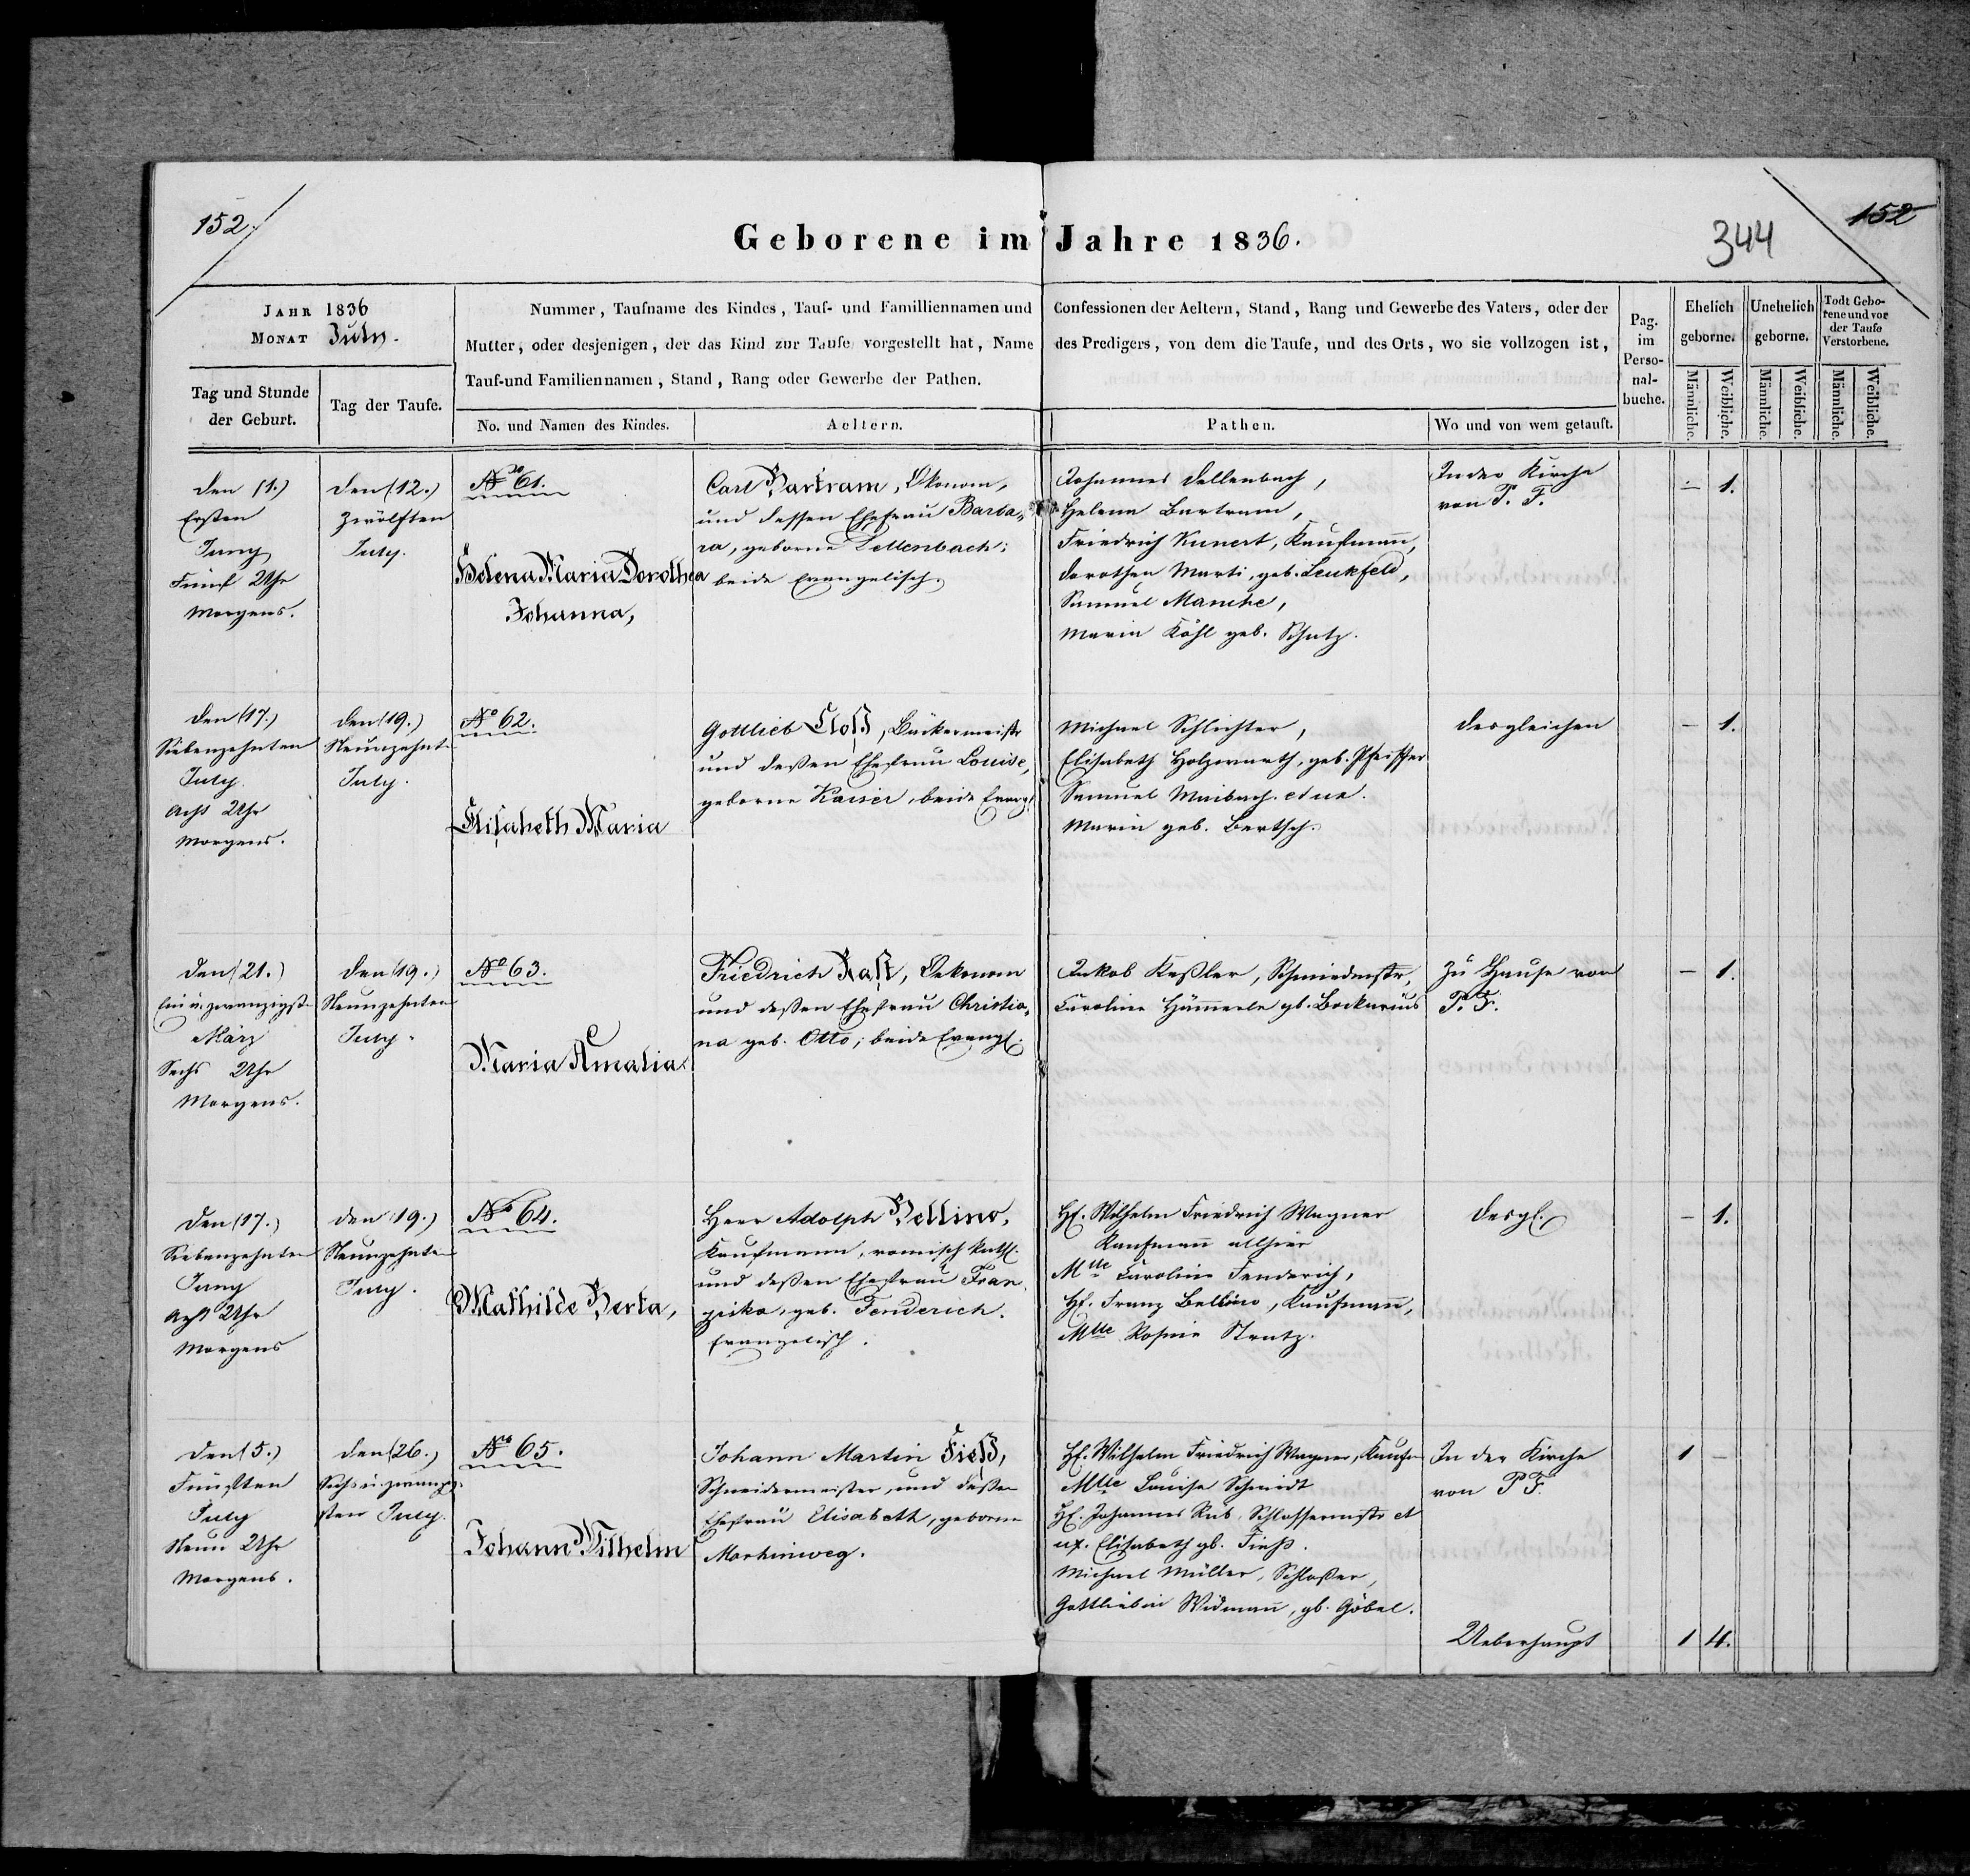 152.
Geborene im Jahre 1836.
344
152
JAHR 1836
MONAT July.
Tag und Stunde
der Geburt.
Tag der Taufe.
Nummer, Taufname des Kindes, Tauf- und Familliennamen und
Mutter, oder desjenigen, der das Kind zur Taufe vorgestellt hat, Name
Tauf-und Familiennamen, Stand, Rang oder Gewerbe der Pathen.
No. und Namen des Kindes.
Aeltern.
Confessionen der Aeltern, Stand, Rang und Gewerbe des Vaters, oder der
des Predigers, von dem die Taufe, und des Orts, wo sie vollzogen ist,
Pathen.
Wo und von wem getauft.
Pag.
im
Perso-
nal-
buche.
Ehelich
geborne.
Unehelich
geborne.
Todt Gebo-
rene und vor
der Taufe
Verstorbene.
Männliche.
Weibliche.
Männliche.
Weibliche.
Männliche.
Weibliche.
den (1.)
Ersten
Juny
Fünf Uhr
Morgens.
den (12.)
Zwölften
July.
No 61.
Helena Maria Dorothea
Johanna,
Carl Bartram, Ökonom,
und dessen Ehefrau Barba-
ra, geborne Dellenbach;
beide Evangelisch
Johannes Dellenbach,
Helena Bartram,
Friedrich Kunert, Kaufmañ,
Dorothea Marti, geb. Leukfeld,
Samuel Manche,
Maria Köhl geb. Schatz.
In der Kirche
von P. F.
– 1.
den (17.)
Siebenzehnten
July.
Acht Uhr
Morgens.
den (19.)
Neunzehnte
July.
No 62.
Elisabeth Maria
Gottlieb Closs, Bäkermeistr
und deßen Ehefrau Louise,
geborne Kaiser, beide Evang
Michael Schlichter,
Elisabeth Holzwarth, geb. Pfeiffer
Samuel Maibach. et ux.
Maria geb. Bertsch.
desgleichen
– 1.
den (21.)
ein u. zwanzigste
März
Sechs Uhr
Morgens.
den (19.)
Neunzehnten
July.
No 63.
Maria Amalia
Friedrich Kast, Oekonom
und deßen Ehefrau Christia-
na geb. Otto; beide Evangl.
Jakob Keßler, Schmiedmstr,
Caroline Häm̃erle gb. Bockarius
zu Hause von
P. F.
– 1.
den (17.)
Siebenzehnten
Juny
Acht Uhr
Morgens
den (19.)
Neunzehnten
July.
No 64.
Mathilde Berta,
Herr Adolph Bellino,
Kaufmann, romisch kathl.
und deßen Ehefrau Fran
ziska, geb. Fenderich.
Evangelisch.
H. Wilhelm Friedrich Wagner
Kaufmañ allhier
Mlle Caroline Fenderich,
H. Franz Bellino, Kaufmañ,
Mlle Rosina Strutz.
desgl.
– 1.
den (5.)
Fünften
July
Neun Uhr
Morgens.
den (26.)
Sechs u. zwanzig-
sten July.
No 65.
Johann Wilhelm
Johann Martin Fieß,
Schneidermeister, und deßen
Ehefrau Elisabeth, geborne
Marhinweg.
H. Wilhelm Friedrich Wagner, Kaufm
Mlle Louise Schmidt
H. Johannes Rub, Schlossermstr et
ux. Elisabeth gb. Fieß.
Michael Müller, Schloßer,
Gottliebin Widmañ, gb. Göbel.
In der Kirche
von P F.
1 –
Ueberhaupt
1 4.